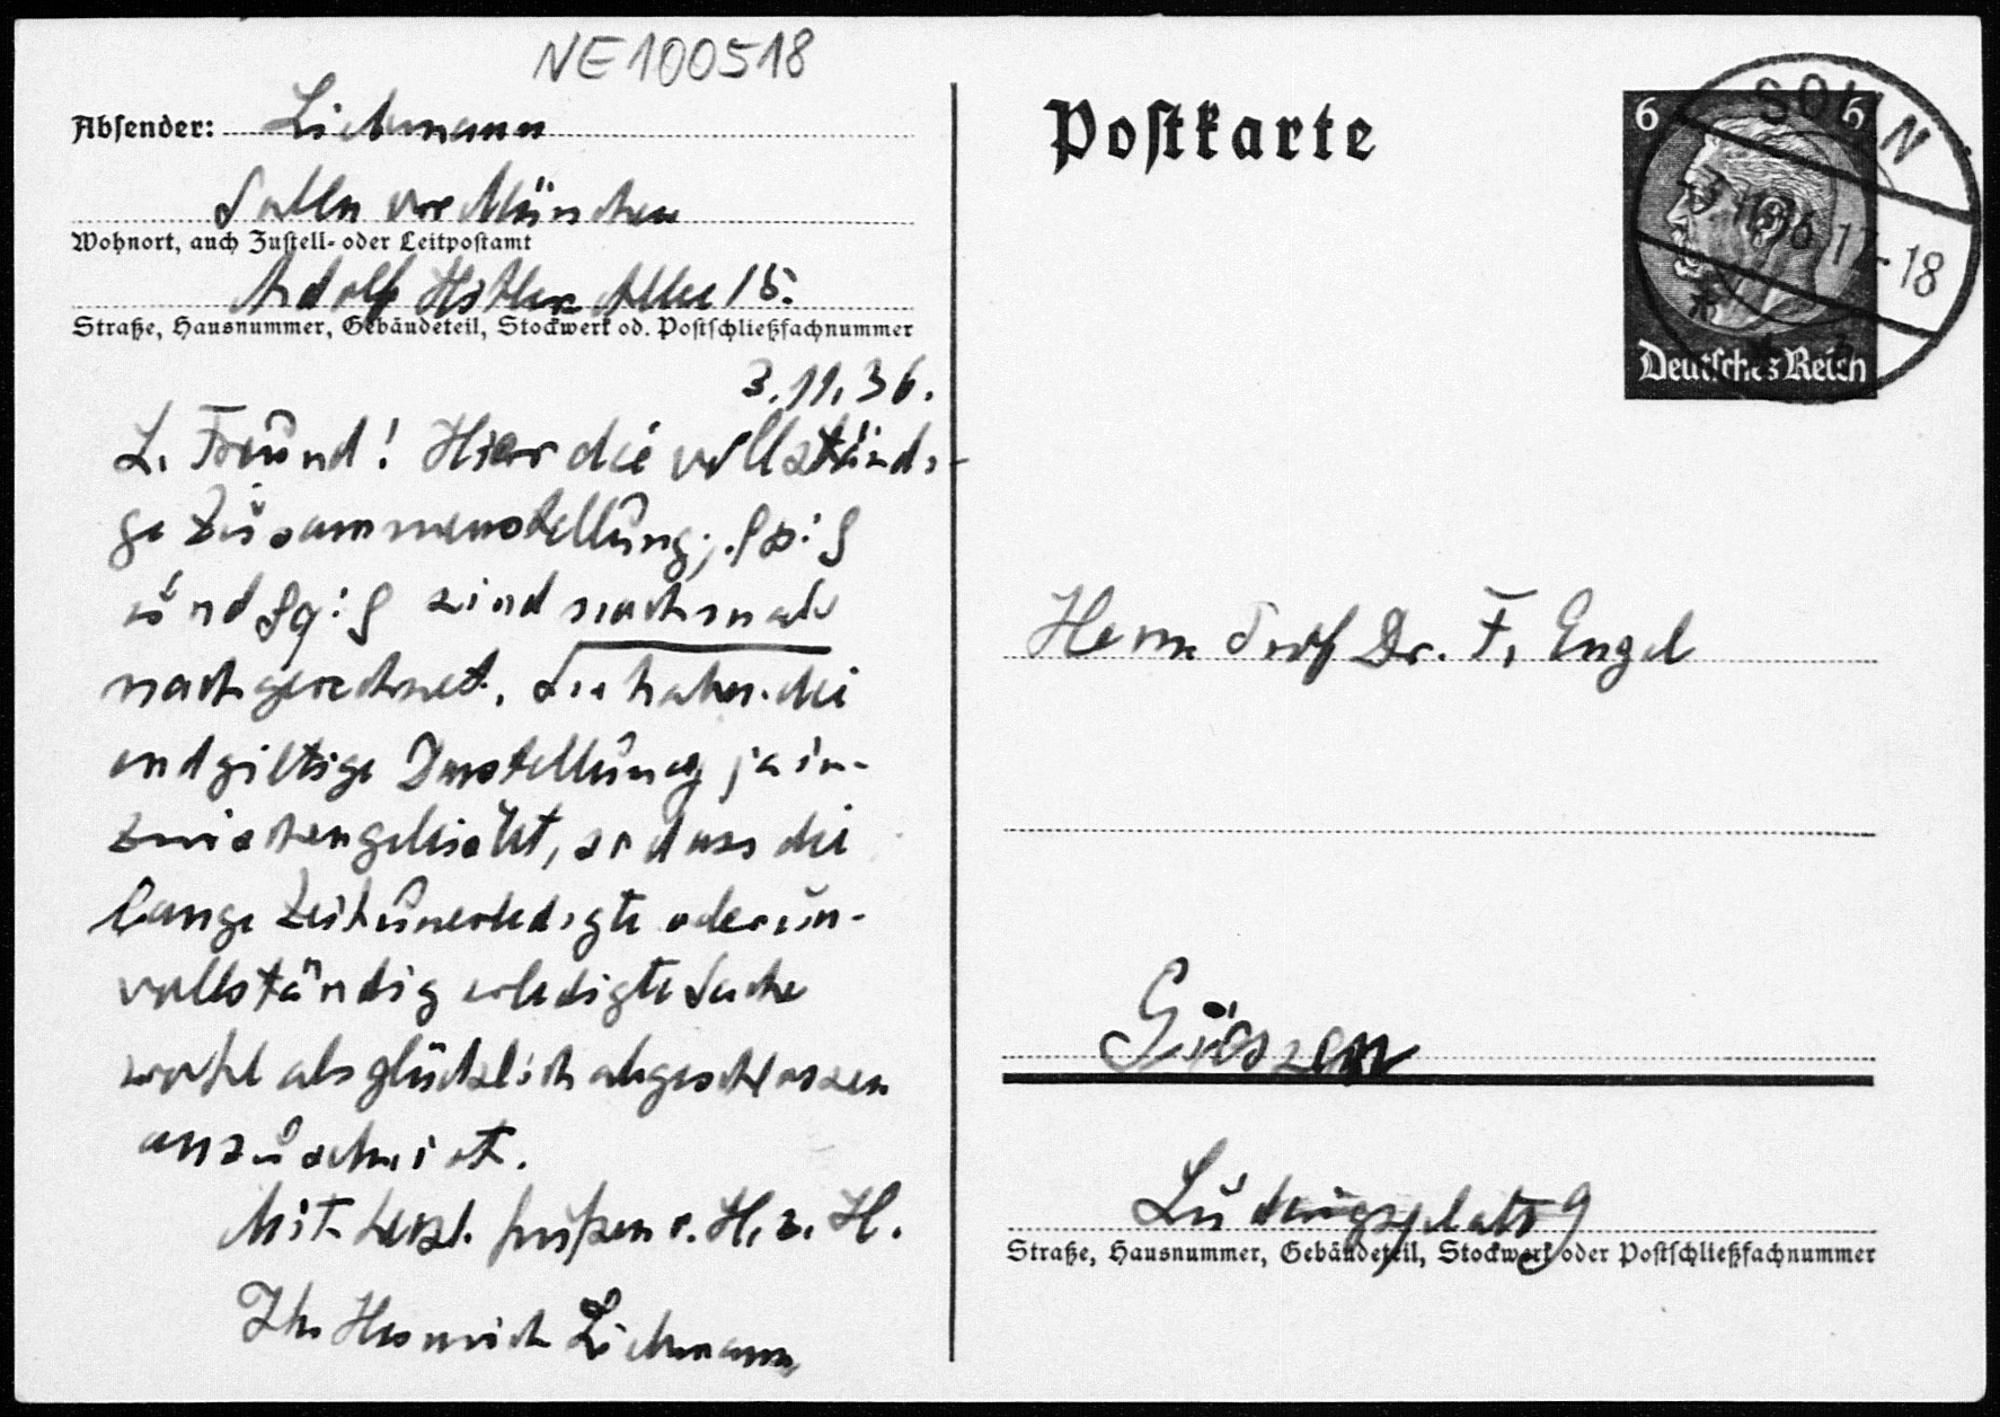 NE100518
Absender: Liebmann
Solln vor München
Wohnort, auch Zustell- oder Leitpostamt
Adolf Hitler Allee 15.
Straße, Hausnummer, Gebäudeteil, Stockwerk od. Postschließfachnummer
3.11.36.
L. Freund! Hier die vollständi-
ge Zusammenstellung;
und sind nochmals
nachgerechnet. Sie haben die
endgiltige Darstellung ja in-
zwischen geliefert, so dass die
lange Zeit unerledigte oder un-
vollständig erledigte Sache
wohl als glücklich abgeschlossen
anzusehen ist.
Mit herzl. Grüßen v. H. z. H.
Ihr Heinrich Liebmann
Postkarte
6 6
Deutsches Reich
SOLLN
17-18
Herrn Prof Dr. F. Engel
Giessen
Ludwigsplatz 9
Straße, Hausnummer, Gebäudeteil, Stockwerk oder Postschließfachnummer